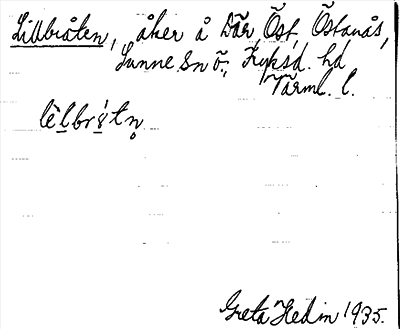 Lillbråten, åker å Där Öst, Östanås,
Sunne sn ö., Fryksd. hd
Värml. l.
lèlbrótn̥
Greta Hedin 1935.